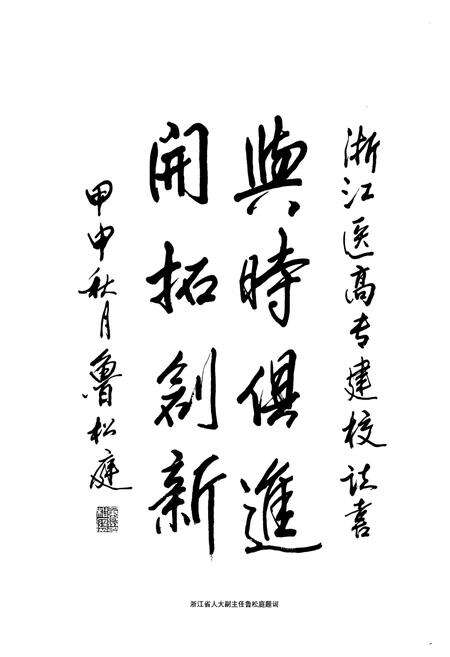 浙江医高专建校誌喜
與時俱進
開拓創新
甲申秋月魯松庭
浙江省人大副主任鲁松庭题词